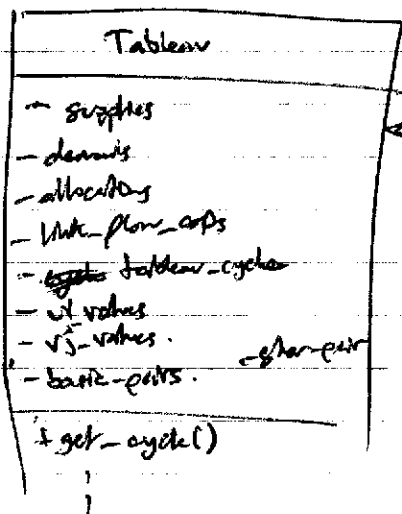 Tableau
- supplies
- demands
- allocations
- unit_flow_costs
- tableau_cycle
- ui_values
- vj_values.
- basic-pairs.
+ get_cycle()